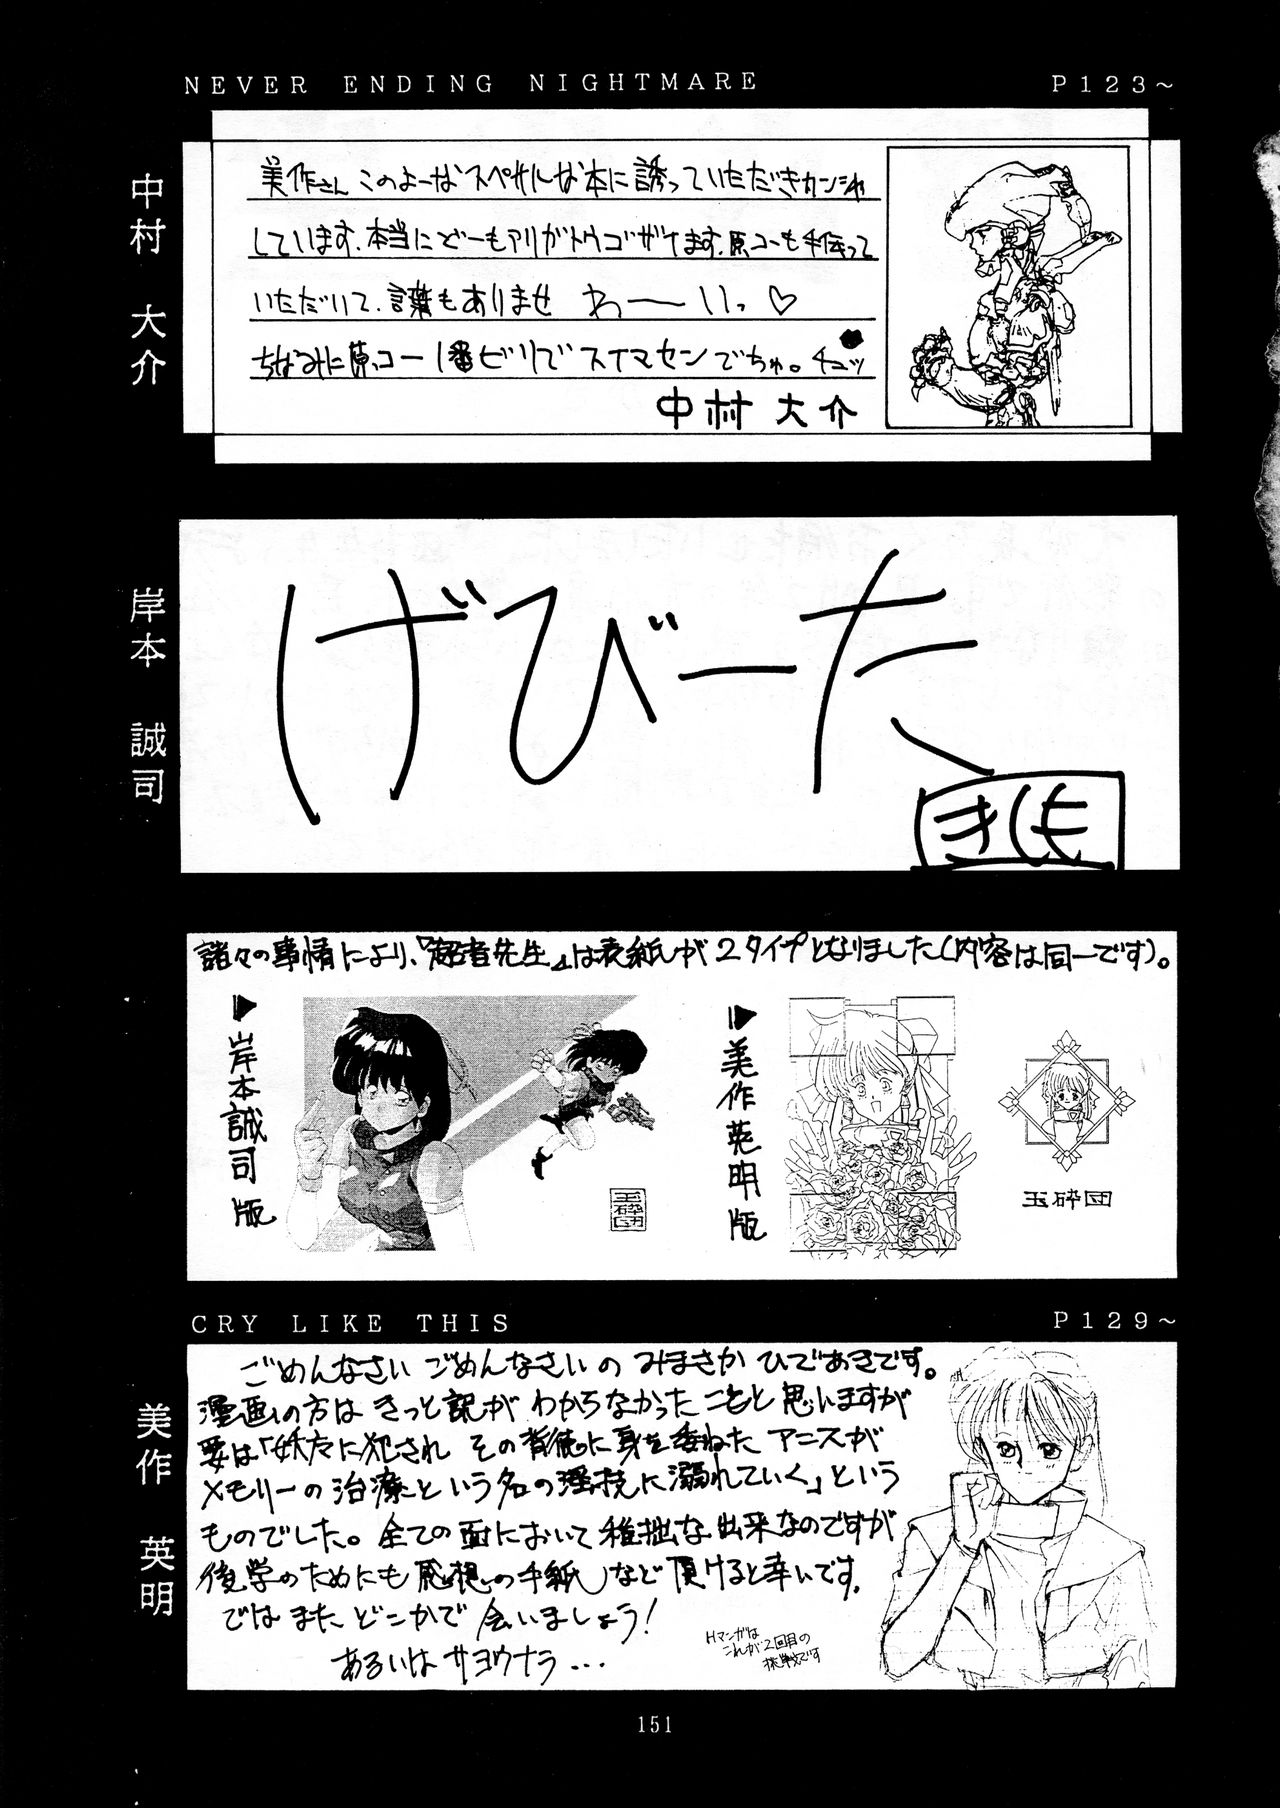 NEVER ENDING NIGHTMARE P123～
中村 大介
美作さん このよーなスペサルな本に誘っていただきカンシャ
しています。本当にどーもアリガトウゴザイます。原コーも手伝って
いただいて、言葉もありませ わーーいっ♡
ちなみに原コー1番ビリでスイマセンでちゅ。チュッ
中村 大介
岸本 誠司
げびーた
きしも
諸々の事情により、『 先生』は表紙が2タイプとなりました(内容は同一です)。
▶岸本誠司版
玉砕団
▶美作英明版
玉砕団
CRY LIKE THIS P129～
美作 英明
ごめんなさい ごめんなさいの みまさか ひであきです。
漫画の方は きっと訳が わからなかったことと思いますが
要は「妖魔に犯され その背徳に身を委ねた アニスが
メモリーの治療という名の淫技に溺れていく」という
ものでした。全ての面において稚拙な出来なのですが
後学のためにも感想の手紙など頂けると幸いです。
では また どこかで 会いましょう!
あるいは サヨウナラ・・・
Hマンガは
これが2回目の
挑戦です
151